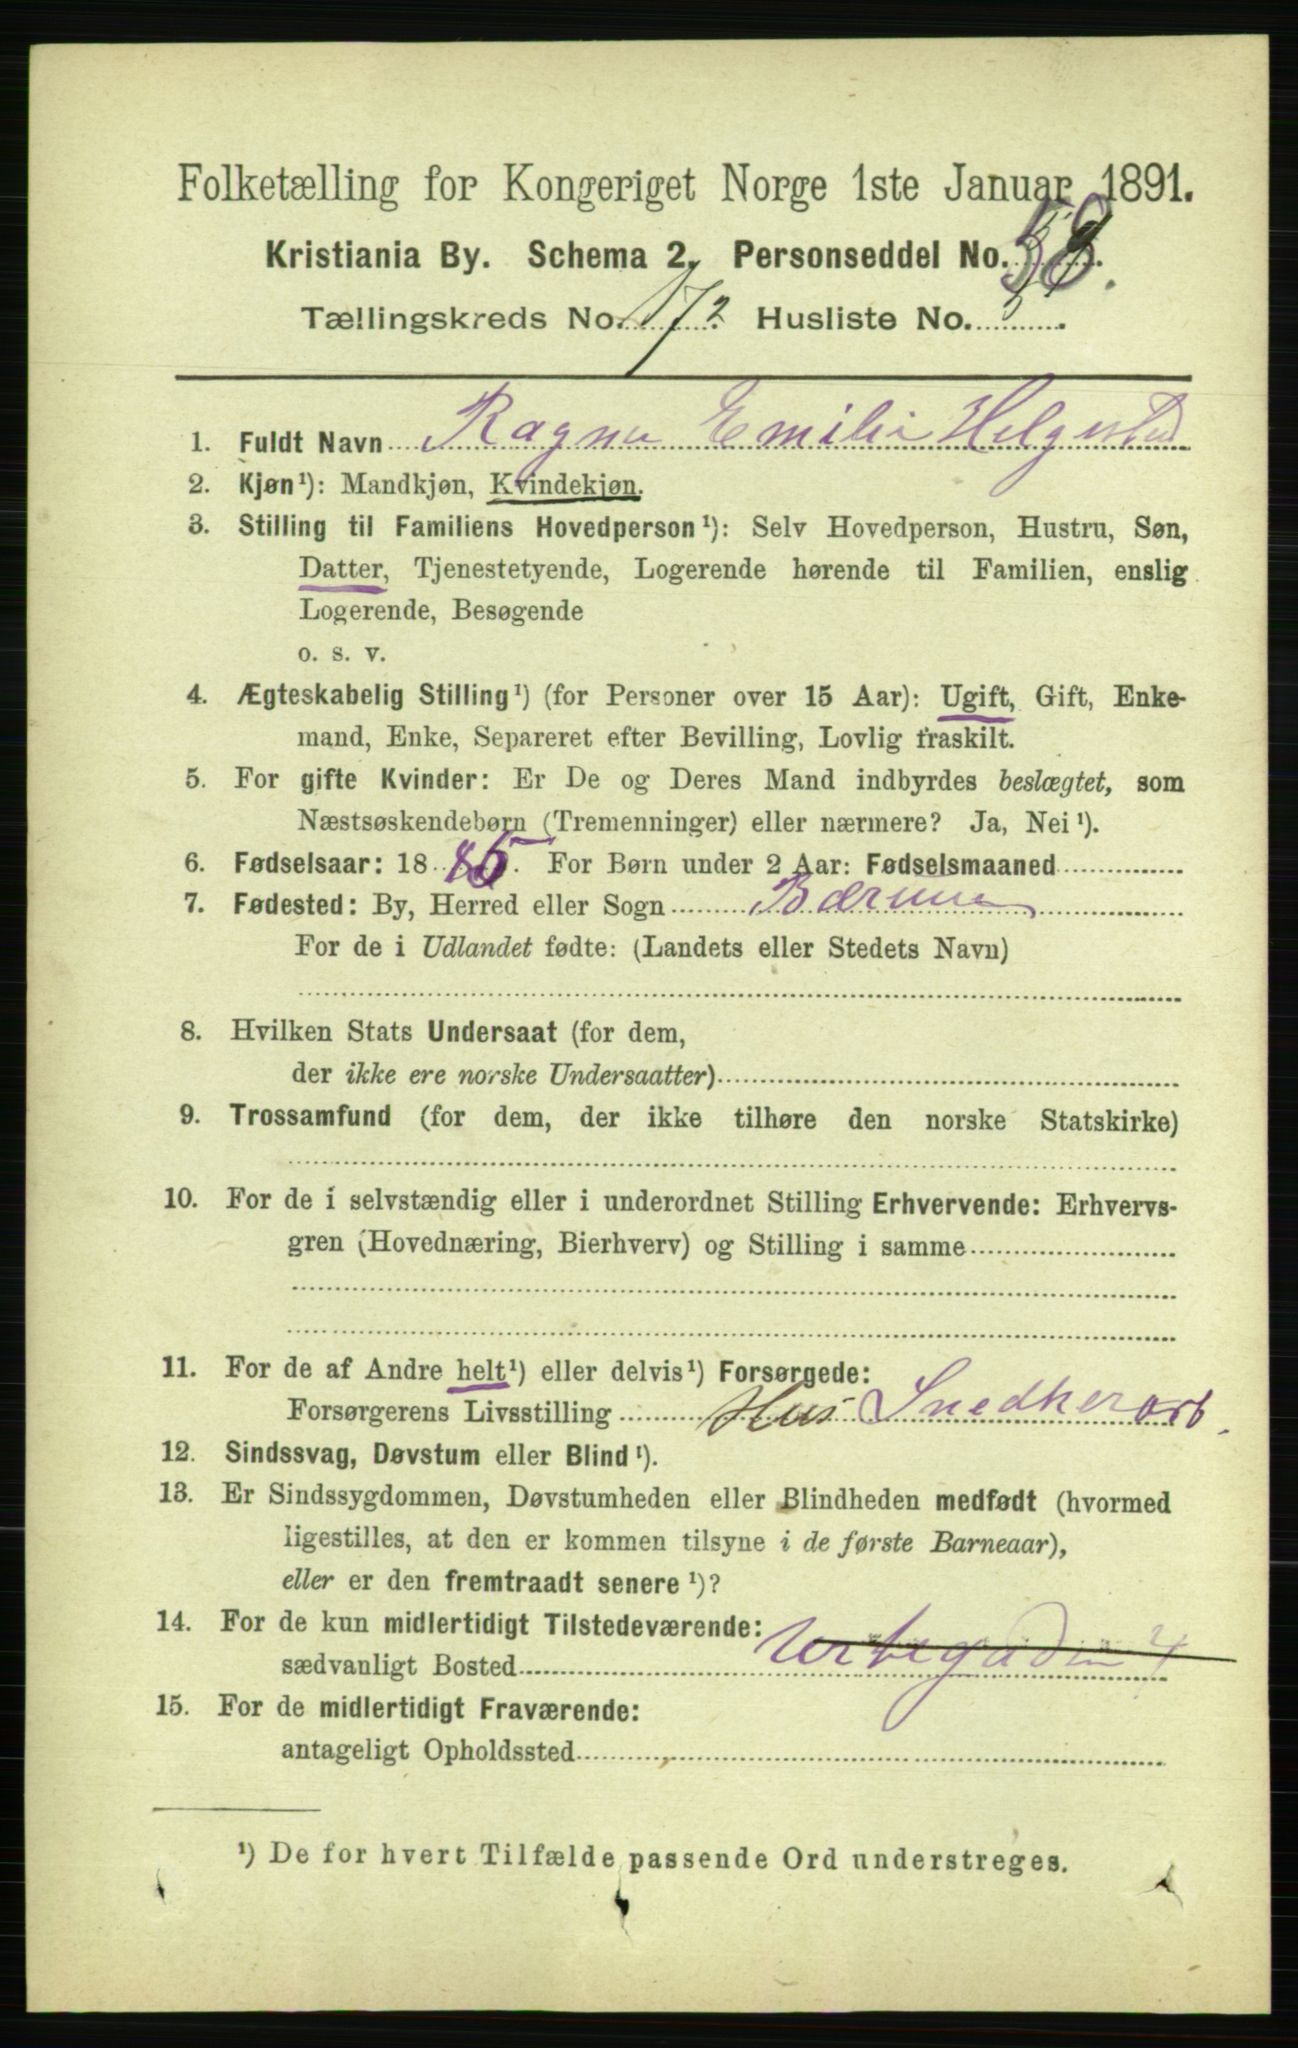 Folketælling for Kongeriget Norge 1ste Januar 1891.
Kristiania By. Schema 2. Personseddel No. 58.
Tællingskreds No. 172. Husliste No. .
1. Fuldt Navn Ragna Emilie Helgestad
2. Kjøn¹): Mandkjøn, Kvindekjøn.
3. Stilling til Familiens Hovedperson¹): Selv Hovedperson, Hustru, Søn,
Datter, Tjenestetyende, Logerende hørende til Familien, enslig
Logerende, Besøgende
o. s. v.
4. Ægteskabelig Stilling¹) (for Personer over 15 Aar): Ugift, Gift, Enke-
mand, Enke, Separeret efter Bevilling, Lovlig fraskilt.
5. For gifte Kvinder: Er De og Deres Mand indbyrdes beslægtet, som
Næstsøskendebørn (Tremenninger) eller nærmere? Ja, Nei¹).
6. Fødselsaar: 1885. For Børn under 2 Aar: Fødselsmaaned
7. Fødested: By, Herred eller Sogn Bærum
For de i Udlandet fødte: (Landets eller Stedets Navn)
8. Hvilken Stats Undersaat (for dem,
der ikke ere norske Undersaatter)
9. Trossamfund (for dem, der ikke tilhøre den norske Statskirke)
10. For de i selvstændig eller i underordnet Stilling Erhvervende: Erhvervs-
gren (Hovednæring, Bierhverv) og Stilling i samme
11. For de af Andre helt¹) eller delvis¹) Forsørgede:
Forsørgerens Livsstilling Hus Snedkerarb.
12. Sindssvag, Døvstum eller Blind¹).
13. Er Sindssygdommen, Døvstumheden eller Blindheden medfødt (hvormed
ligestilles, at den er kommen tilsyne i de første Barneaar),
eller er den fremtraadt senere¹)?
14. For de kun midlertidigt Tilstedeværende:
sædvanligt Bosted Urtegaden 4
15. For de midlertidigt Fraværende:
antageligt Opholdssted
¹) De for hvert Tilfælde passende Ord understreges.